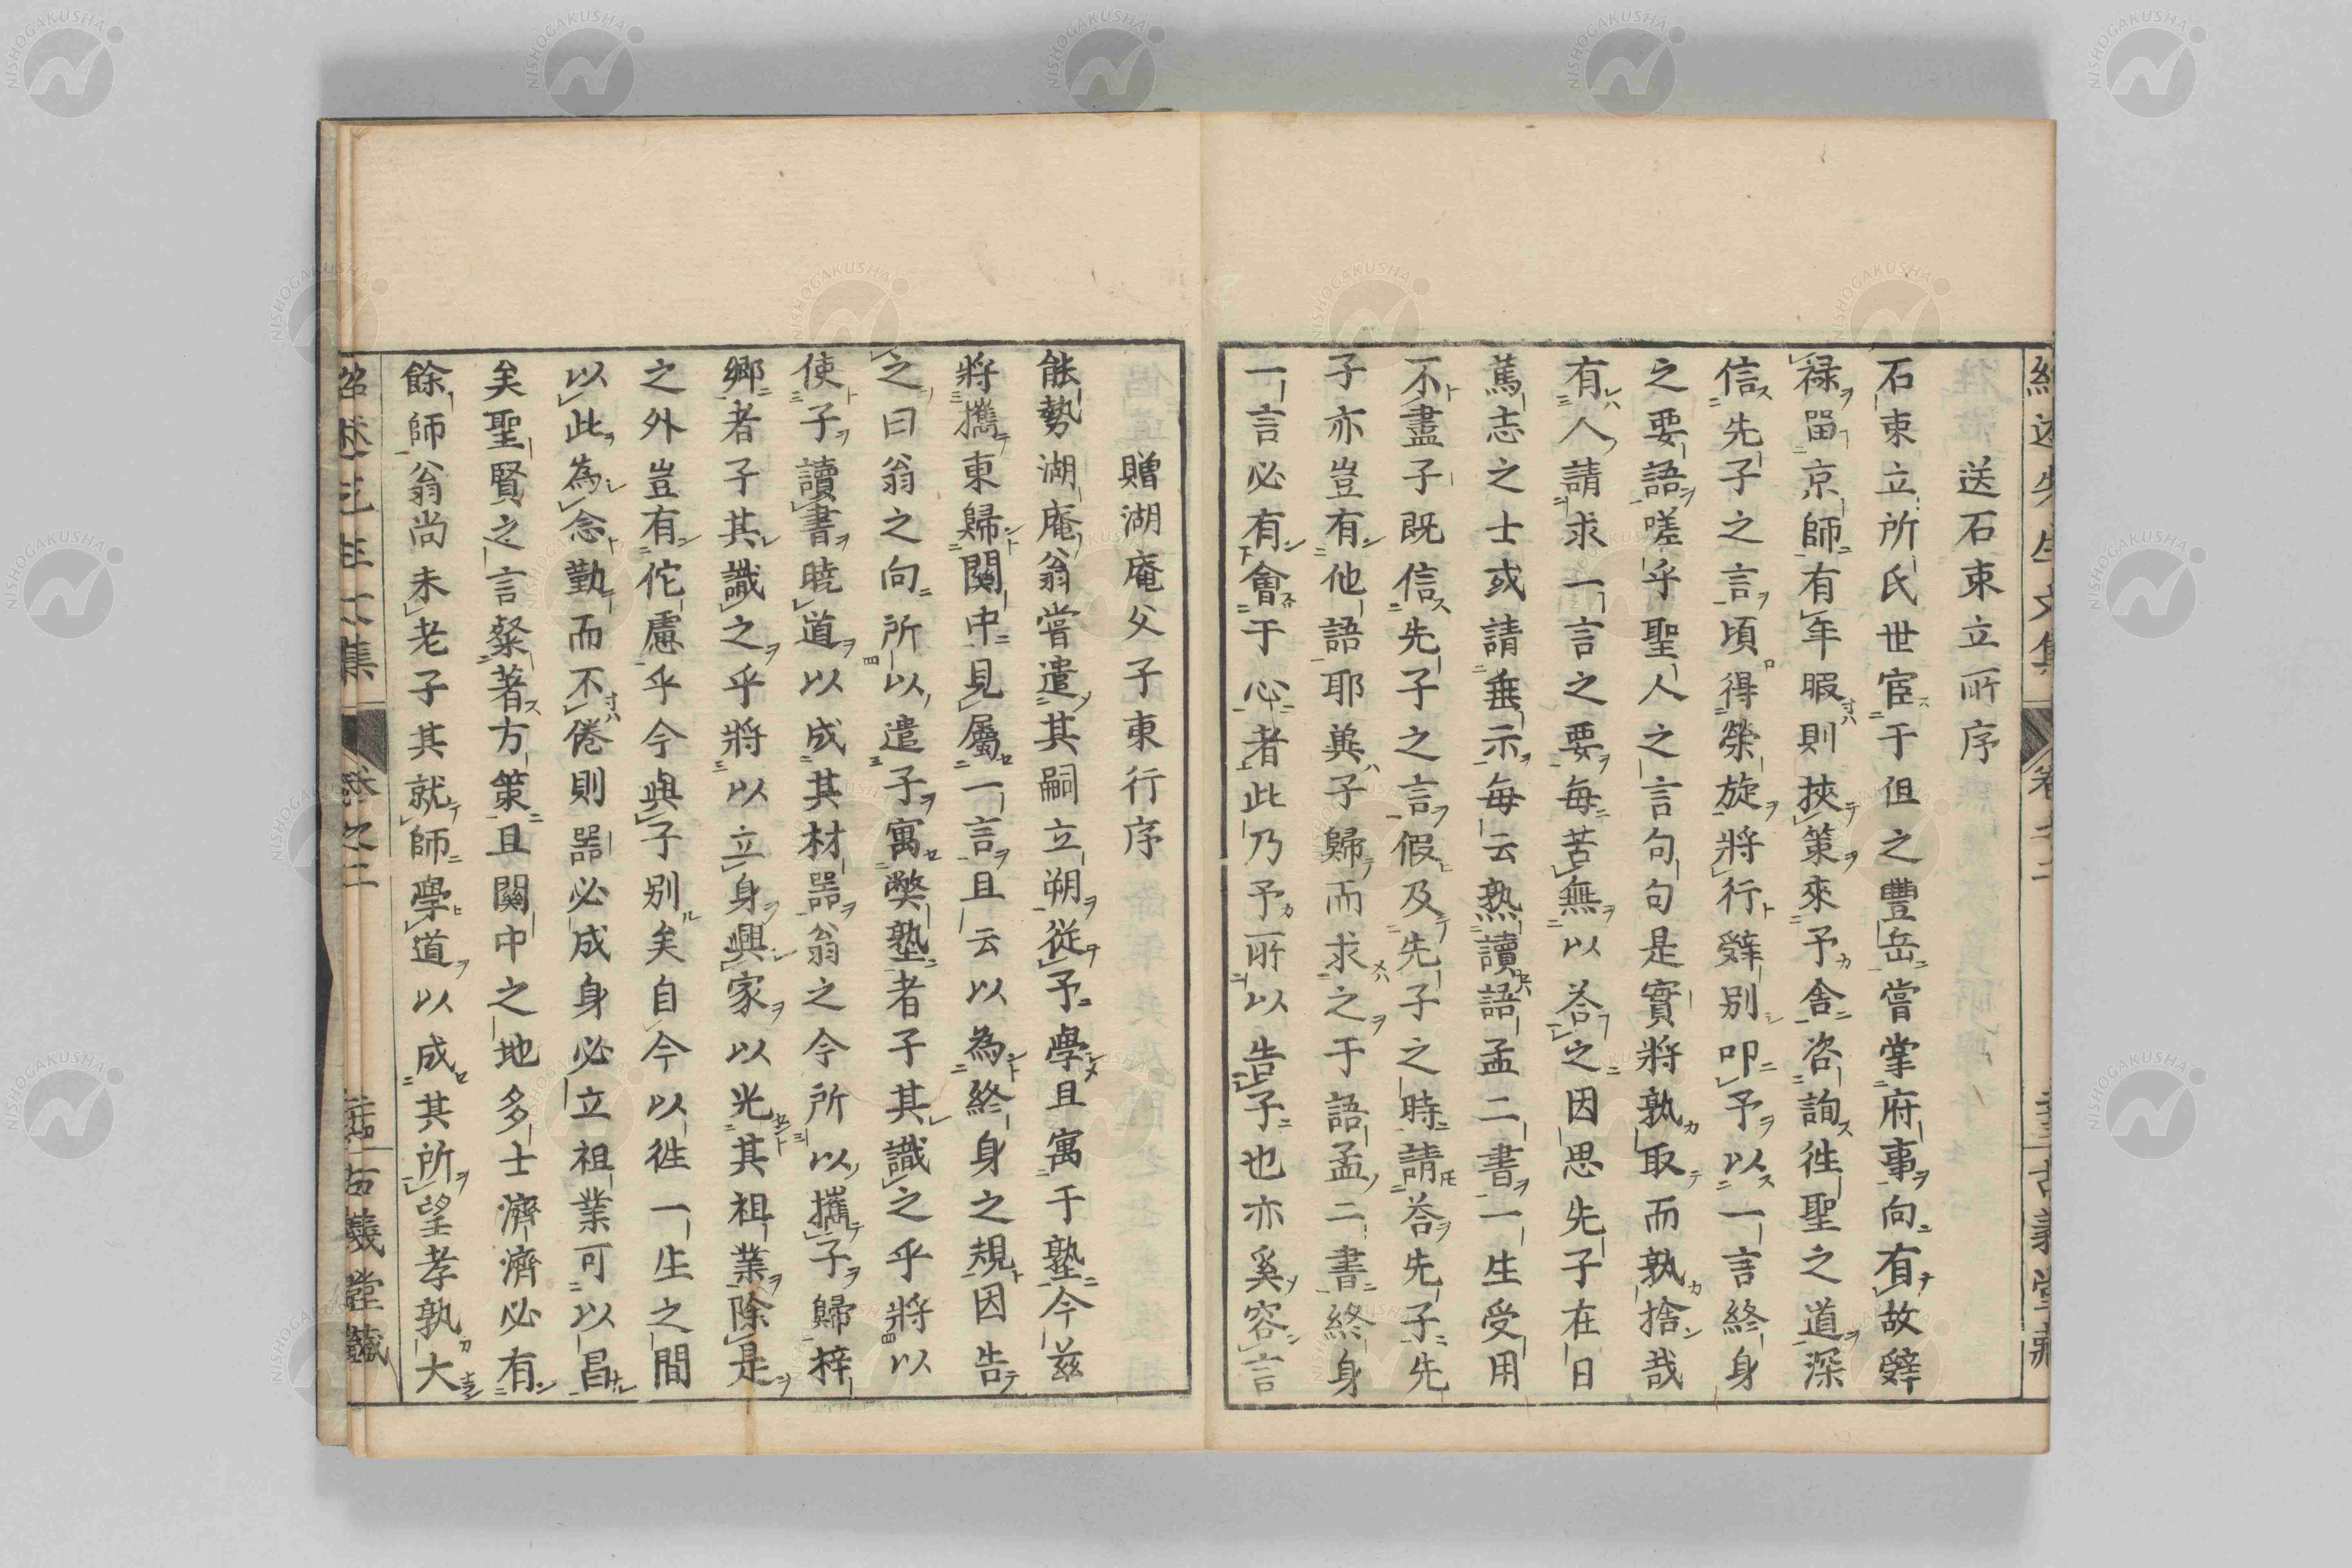 送石束立所序
石束立所氏世宦于但之豐岳嘗掌府事向有故辤
禄畱京師有年暇則挾策來予舍咨詢徃聖之道深
信先子之言頃得榮旋將行辤别叩予以一言終身
之要語嗟乎聖人之言句句是實將孰取而孰捨哉
有人請求一言之要每苦無以荅之因思先子在日
篤志之士或請垂示每云熟讀語孟二書一生受用
不盡子既信先子之言假及先子之時請荅先子先
子亦豈有他語耶冀子歸而求之于語孟二書終身
一言必有會于心者此乃予所以告子也亦奚容言
贈湖庵父子東行序
能勢湖庵翁嘗遣其嗣立朔從予學且寓于塾今茲
將攜東歸關中見屬一言且云以為終身之規因告
之曰翁之向所以遣子寓弊塾者子其識之乎將以
使子讀書曉道以成其材器翁之今所以攜子歸梓
鄉者子其識之乎將以立身興家以光其祖業除是
之外豈有佗慮乎今與子别矣自今以徃一生之間
以此為念勤而不倦則器必成身必立祖業可以昌
矣聖賢之言粲著方策且關中之地多士濟濟必有
餘師翁尚未老子其就師學道以成其所望孝孰大
紹述先生文集 卷之二 古義堂藏